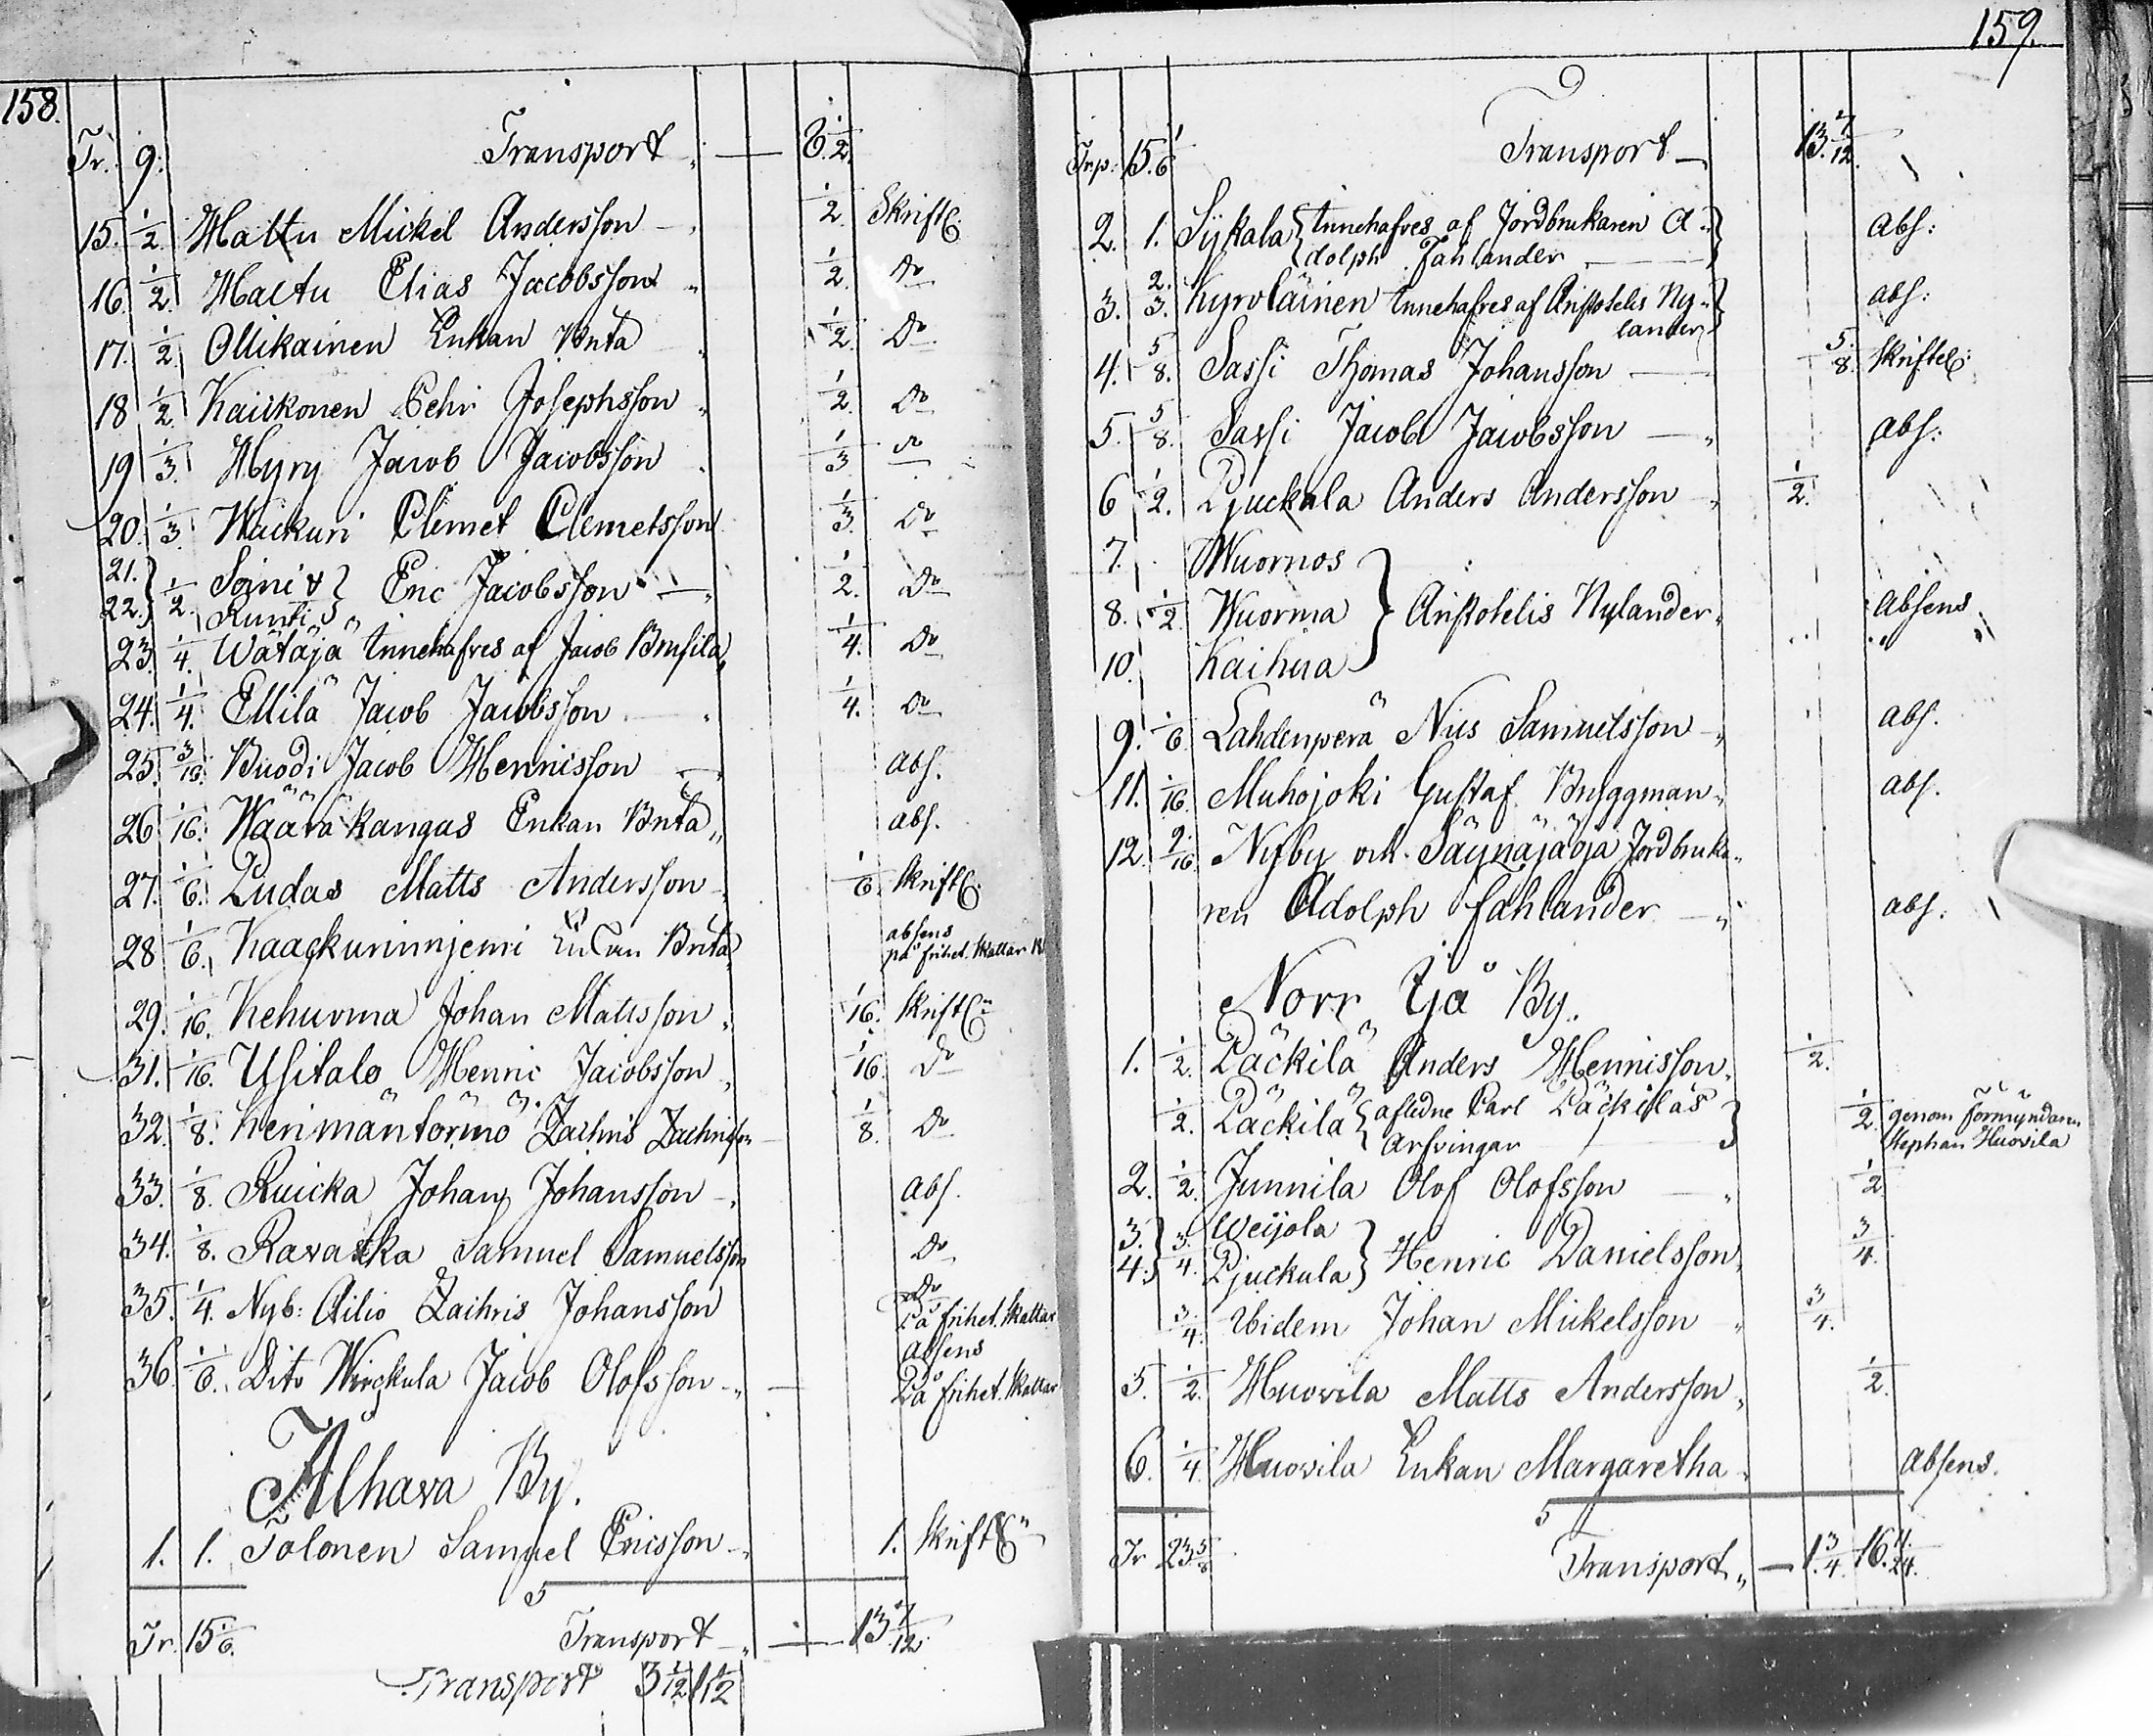 158.
Tr. 9. Transport 8 1/2
15. 1/2 Mattu Mickel Andersson 1/2. Skriftl:
16. 1/2. Mattu Elias Jacobsson 1/2. Do
17. 1/2 Ollikainen Enkan Brita 1/2. Do
18 1/2. Kaickonen Pehr Josephsson 1/2. Do
19 1/3. Myry Jacob Jacobsson 1/3 Do
20. 1/3. Wäckuri Clemet Clemetsson 1/3. Do
21. 22. 1/2. Soini & Runti Eric Jacobsson 1/2. Do
23. 1/4. Wätäjä Innehafves af Jacob Brusila 1/4. Do
24. 1/4. Ellilä Jacob Jacobsson 1/4. Do
25. 3/16. Buodi Jacob Henricsson abs.
26 1/16. Wäärä kangas Enkan Brita abs.
27. 1/6. Pudas Matts Andersson 1/6. skriftl:
28 1/6. Kaackurinnjemi Enkan Brita absens
på frihet. skattar
29. 1/16. Kehusma Johan Mattsson 1/16. skriftl:
31. 1/16. Usitalo Henric Jacobsson 1/16. Do
32. 1/8. Kerimäntörmö Zachris Zachrisson 1/8. Do
33. 1/8. Ruicka Johan Johansson abs.
34. 1/8. Ravaska Samuel Samuelsson Do
35. 1/4. Nyb: Ailio Zachris Johansson Do
På frihet. skattar
36. 1/6. Dito Wirckula Jacob Olofsson absens
På frihet. skattar
Alhava By.
1. 1. Tolonen Samuel Ericsson 1. skriftl:
Tr. 15 1/6. Transport 13 7/12.
Transport 3 1/2 1 1/2
159.
Trp: 15. 1/6 Transport 13. 7/12.
2. 1. Sÿkala Innehafves af Jordbrukaren A- abs:
dolph Fahlander
3. 2/3. Kyröläinen Innehafves af Aristotelis Ny- abs:
lander
4. 5/8. Sassi Thomas Johansson 5/8. skriftel:
5. 5/8. Sassi Jacob Jacobsson abs:
6 1/2. Pjuckala Anders Andersson 1/2.
7. Wuornos
8. 1/2 Wuorma Aristotelis Nylander absens
10. Kaihua
9. 1/6 Lahdenperä Nils Samuelsson abs.
11. 1/16. Muhojoki Gustaf Bryggman abs.
12. 9/16 Nyby och Säynäjäoja Jordbruka-
ren Adolph Fahlander abs.
Norr Ijå By.
1. 1/2. Päckilä Anders Henricsson 1/2.
1/2. Päckilä aflidne Carl Päckiläs 1/2 genom Förmyndaren
Arfvingar Stephan Huovila
2. 1/2. Junnila Olof Olofsson 1/2
3. 4. 3/4. Weijola
Pjuckala Henric Danielsson 3/4.
3/4. Ibidem Johan Mickelsson 3/4.
5. 1/2. Huovila Matts Andersson 1/2.
6. 1/4. Huovila Enkan Margaretha absens.
Tr 23 5/8 Transport 1. 3/4. 16. 11/24.